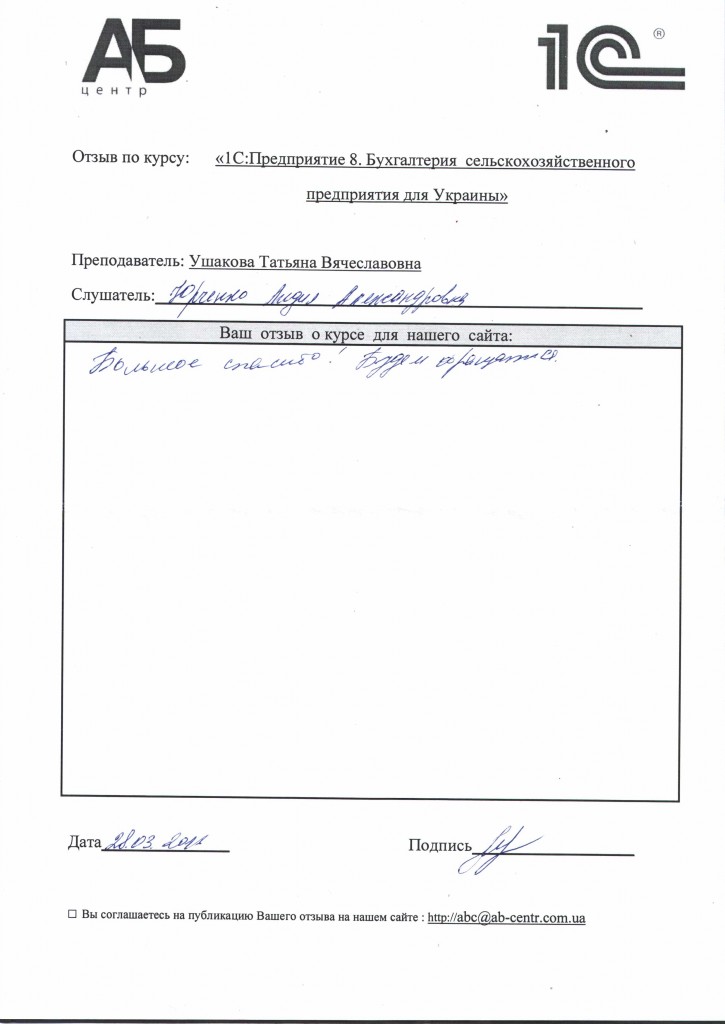 АБ
центр
1С ®
Отзыв по курсу: «1С:Предприятие 8. Бухгалтерия сельскохозяйственного
предприятия для Украины»
Преподаватель: Ушакова Татьяна Вячеславовна
Слушатель: Юрченко Лидия Александровна
Ваш отзыв о курсе для нашего сайта:
Большое спасибо! Будем обращаться.
Дата 28.03.
Подпись
☐ Вы соглашаетесь на публикацию Вашего отзыва на нашем сайте : http://abc@ab-centr.com.ua